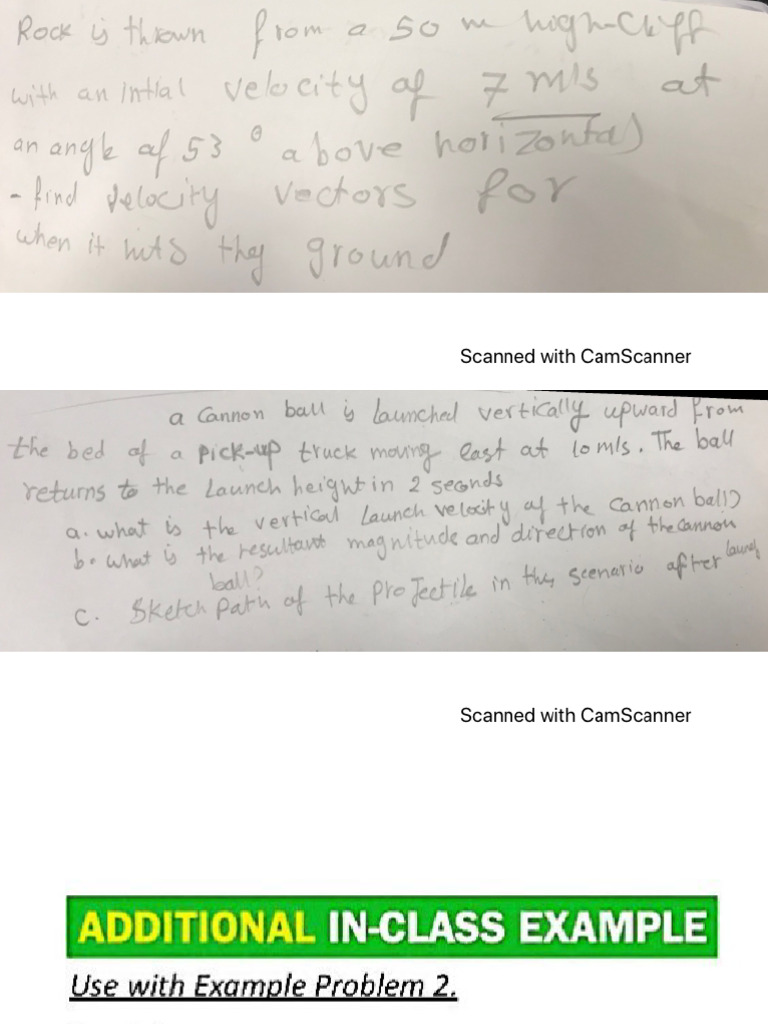 Rock is thrown from a 50 m high-Cliff
with an intial velocity of 7 m/s at
an angle of 53° above horizontal
- find velocity vectors for
when it hits the ground
Scanned with CamScanner
a Cannon ball is launched vertically upward from
the bed of a pick-up truck moving east at 10 m/s. The ball
returns to the Launch height in 2 seconds
a. what is the vertical Launch velocity of the cannon ball?
b. what is the resultant magnitude and direction of the cannon
ball?
c. Sketch Path of the ProJectile in this scenario after launch
Scanned with CamScanner
ADDITIONAL IN-CLASS EXAMPLE
Use with Example Problem 2.